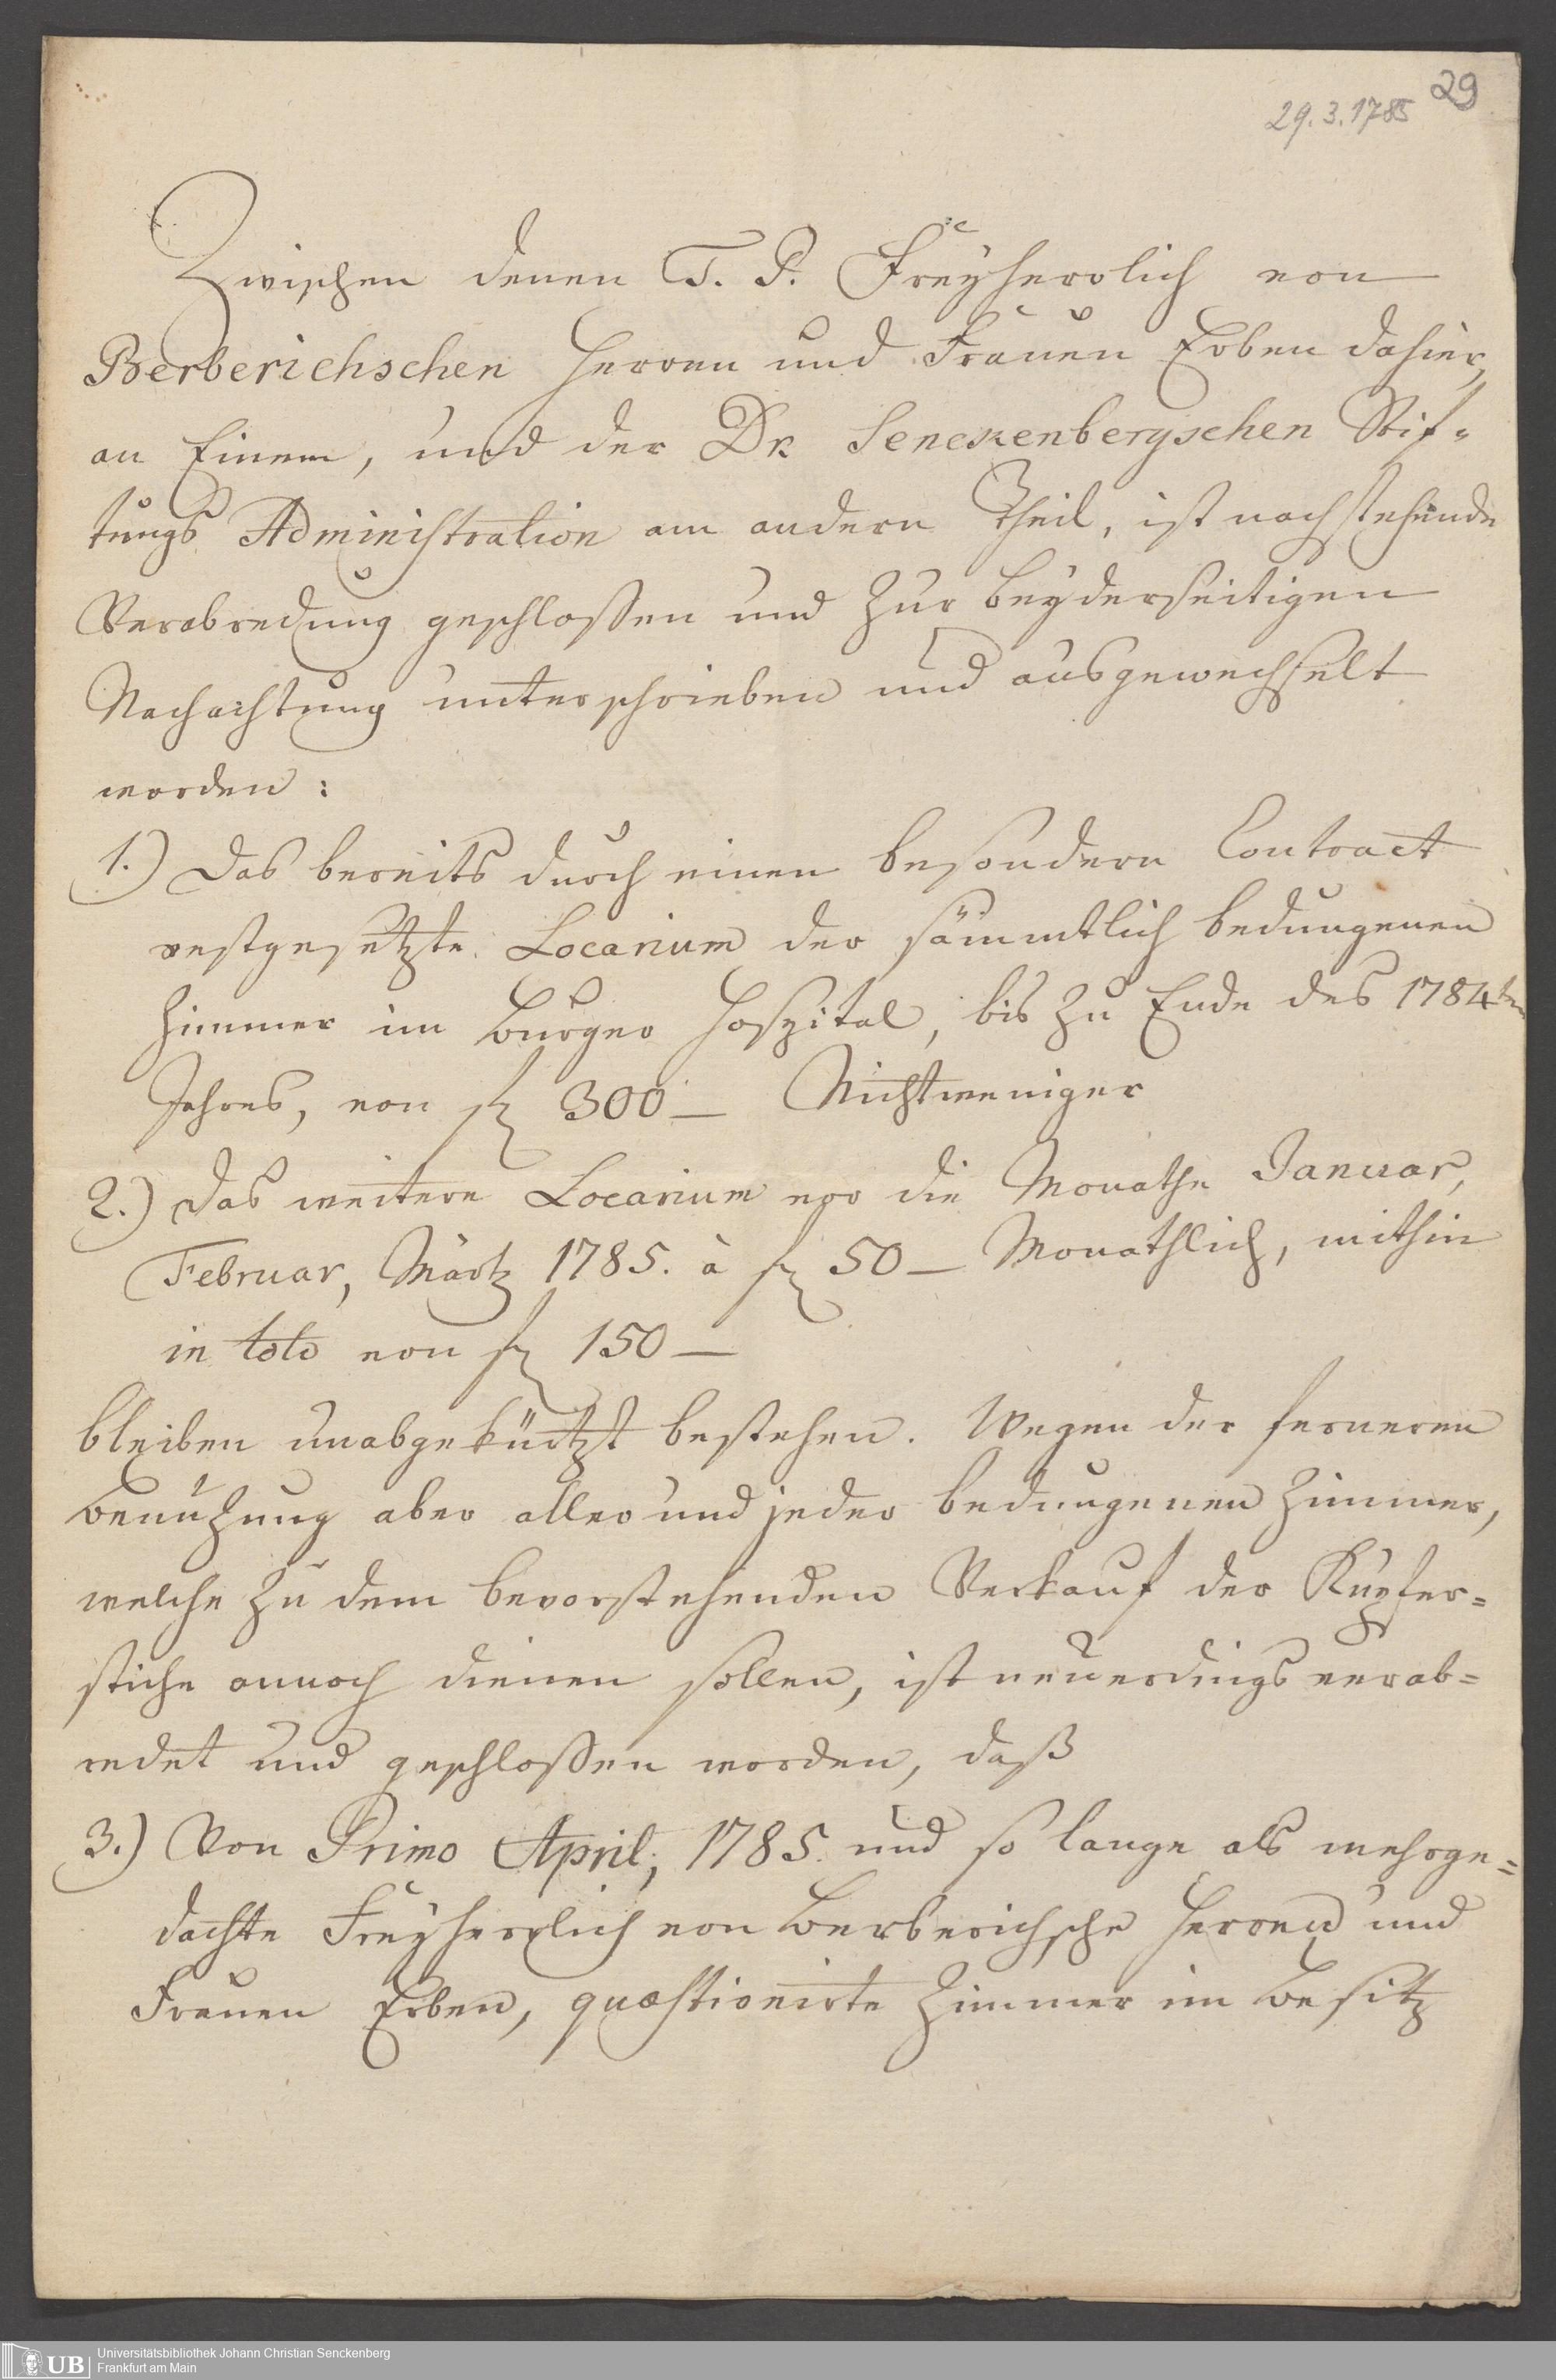 29
29.3.1785
Zwischen denen T. P. Freyherrlich von
Berberichschen Herren und Frauen Erben dahier,
an Einem, und der Dr. Senckenbergschen Stif=
tungs Administration am andern Theil, ist nachstehende
Verabredung geschlossen und zur beyderseitigen
Nachachtung unterschrieben und ausgewechselt
worden:
1.) Das bereits durch einen besondern Contract
vestgesetzte Locarium der sämmtlich bedungenen
Zimmer im Burger Hospital, bis zu Ende des 1784ten
Jahres, von f 300 — Nichtweniger
2.) Das weitere Locarium vor die Monathe Januar,
Februar, Märtz 1785. à f 50 — Monathlich, mithin
in toto von f 150 —
bleiben unabgekürtzt bestehen. Wegen der ferneren
Benuzung aber aller und jeder bedungenen Zimmer,
welche zu dem bevorstehenden Verkauf der Kupfer=
stiche annoch dienen sollen, ist neuerdings verab=
redet und geschlossen worden, daß
3.) Von Primo April, 1785. und so lange als mehrge=
dachte Freyherrlich von Berberichsche Herren und
Frauen Erben, quæstionirte Zimmer im Besitz
UB
Universitätsbibliothek Johann Christian Senckenberg
Frankfurt am Main